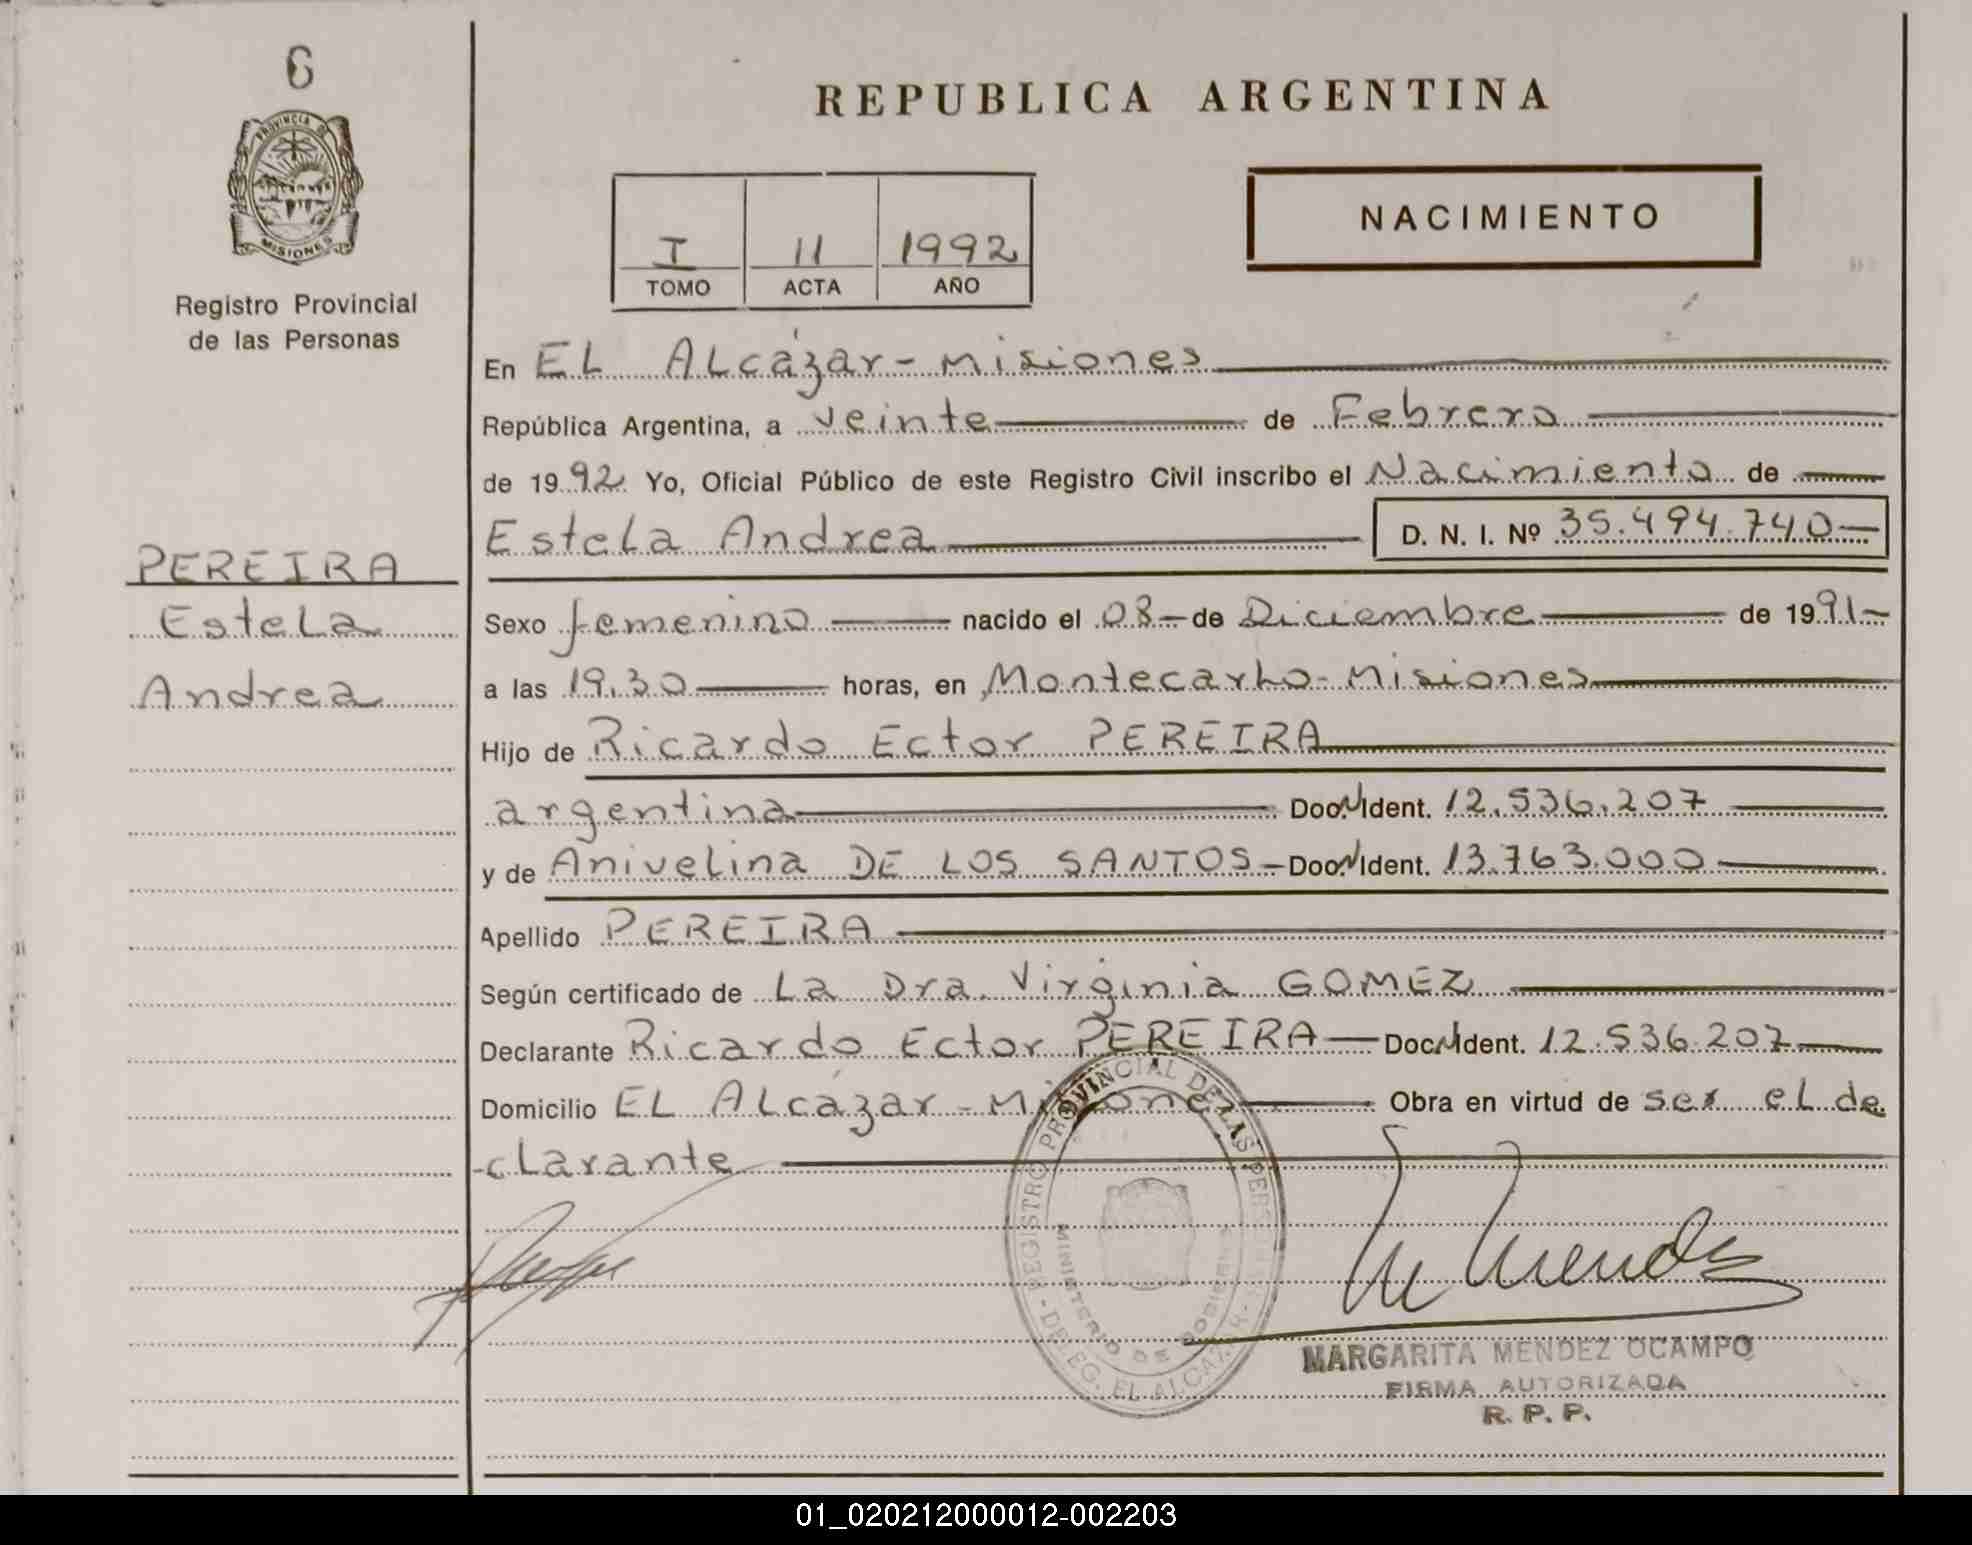 6
PROVINCIA DE
MISIONES
Registro Provincial
de las Personas
PEREIRA
Estela
Andrea
REPUBLICA ARGENTINA
I 11 1992
TOMO ACTA AÑO
NACIMIENTO
En EL Alcázar - Misiones
República Argentina, a veinte de Febrero
de 1992 Yo, Oficial Público de este Registro Civil inscribo el Nacimiento de
Estela Andrea D. N. I. Nº 35.494.740
Sexo femenino nacido el 08 de Diciembre de 1991
a las 19.30 horas, en Montecarlo - Misiones
Hijo de Ricardo Ector PEREIRA
argentina Doc. N Ident. 12.536.207
y de Anivelina DE LOS SANTOS Doc. N Ident. 13.763.000
Apellido PEREIRA
Según certificado de La Dra. Virginia GOMEZ
Declarante Ricardo Ector PEREIRA Doc. N Ident. 12.536.207
Domicilio EL Alcázar - Misiones Obra en virtud de ser el de
-clarante
REGISTRO PROVINCIAL DE LAS PERSONAS
MINISTERIO DE GOBIERNO
- DELEG. EL ALCAZAR -
M Mendez
MARGARITA MENDEZ OCAMPO
FIRMA AUTORIZADA
R. P. P.
01_020212000012-002203